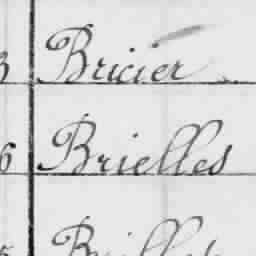 3 Bricier
6 Brielles